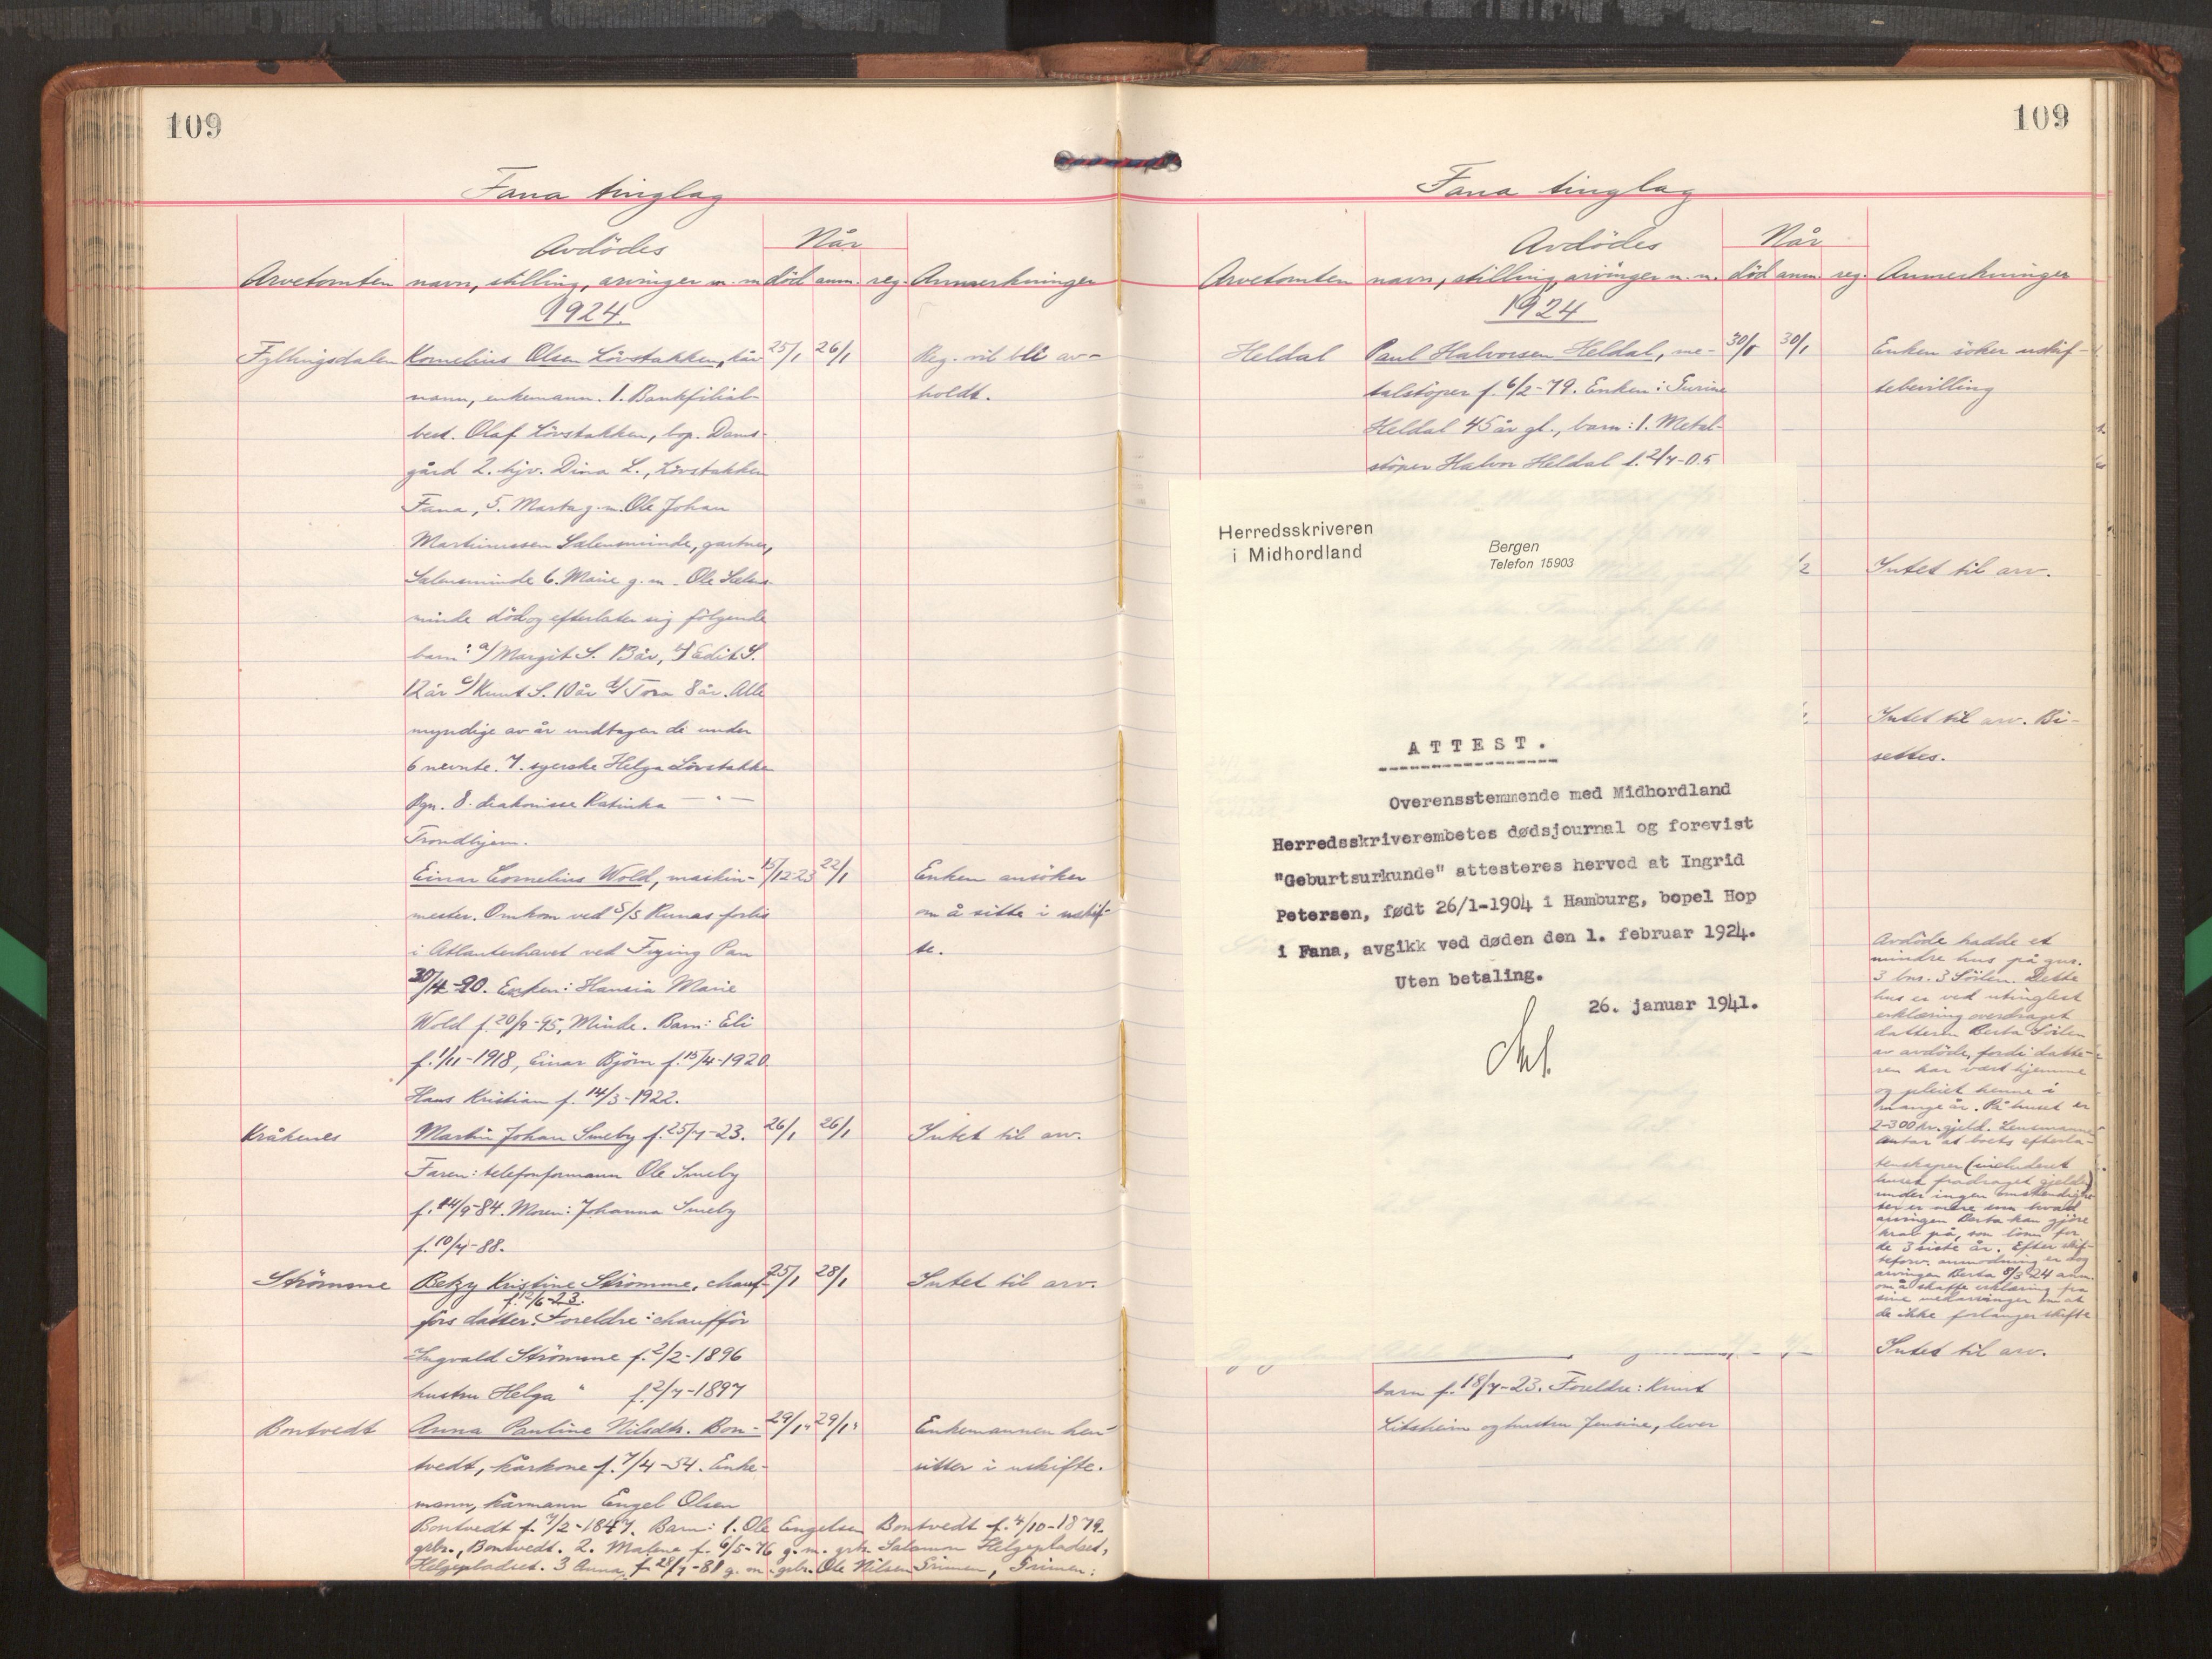 109
Fana tinglag
Avdödes
Når
Arvetomten navn, stilling, arvinger m. m död anm. reg. Anmerkninger
1924.
Fyllingsdalen Kornelius Olsen Lövstakken, kår 25/1 26/1 Reg. vil bli av-
mann, enkemann. 1. Bankfilial- holdt.
best. Olaf Lövstakken, bop. Dams-
gård 2. hjv. Dina L., Lövstakken
Fana, 5. Marta g. m. Ole Johan
Martinussen Salensminde, gartner,
Salensminde 6. Marie g. m. Ole Salens-
minde död og efterlater sig fölgende
barn: a/ Margit S. 13 år, b/ Edit S.
12 år c/ Knut S. 10 år d/ Tora 8 år. Alle
myndige av år undtagen de under
6 nevnte. 7. syerske Helga Lövstakken
Bgn. 8. diakonisse Katinka — " —
Trondhjem.
Einar Cornelius Wold, maskin- 15/12 23 22/1 Enken ansöker
mester. Omkom ved S/S Runas forlis om å sitte i uskif-
i Atlanterhavet ved Frying Pan te.
30/4-20. Enken: Hansia Marie
Wold f. 20/9-95, Minde. Barn: Eli
f. 1/11-1918, Einar Björn f. 15/4-1920.
Hans Kristian f. 14/3-1922.
Kråkenes Martin Johan Smeby f. 25/7-23. 26/1 26/1 Intet til arv.
Faren: telefonformann Ole Smeby
f. 24/9-84. Moren: Johanna Smeby
f. 10/7-88.
Strömme Betzy Kristine Strömme, chauf- 25/1 28/1 Intet til arv.
f. 12/6-23.
förs datter. Foreldre: chaufför
Ingvald Strömme f. 2/2-1896
hustru Helga " f. 2/7-1897
Bontvedt Anna Pauline Nilsdtr. Bon- 29/1" 29/1" Enkemannen hen-
tvedt, kårkone f. 7/4-54. Enke- sitter i uskifte.
mann, kårmann Engel Olsen
Bontvedt f. 7/2-1847. Barn: 1. Ole Engelsen Bontvedt f. 4/10-1879.
grbr., Bontvedt. 2. Malene f. 6/5-76 g. m. grbr. Salamon Helgepladset,
Helgepladset. 3 Anna f. 28/7-81 g. m. grbr. Ole Nilsen Grimen, Grimen:
109
Fana tinglag
Avdödes
Når
Arvetomten navn, stilling, arvinger m. m. död anm. reg. Anmerkninger
1924
Heldal Paul Halvorsen Heldal, me- 30/1 30/1 Enken söker uskif-
talstöper f. 6/2-79. Enken: Gurine tebevilling
Heldal 45 år gl., barn: 1. Metal-
stöper Halvor Heldal f. 2/7-05
Herredsskriveren
i Midhordland
Bergen
Telefon 15903
ATTEST.
Overensstemmende med Midhordland
Herredsskriverembetes dødsjournal og forevist
"Geburtsurkunde" attesteres herved at Ingrid
Petersen, født 26/1-1904 i Hamburg, bopel Hop
i Fana, avgikk ved døden den 1. februar 1924.
Uten betaling.
26. januar 1941.
Intet til arv.
Intet til arv. Bi-
settes.
Avdöde hadde et
mindre hus på gnr.
3 bnr. 3 Söilen. Dette
hus er ved utinglest
erklæring overdraget
datteren Berta Söilen
av avdöde, fordi datte-
ren har vært hjemme
og pleiet henne i
mange år. På huset er
2-300 kr. gjeld. Lensmannen
antar at boets efterla-
tenskaper (inkluderet
huset fradraget gjelden)
under ingen omstendighe-
ter er mere enn hvad
arvingen Berta kan gjöre
krav på, som lönn for
de 3 siste år. Efter skif-
teforv. anmodning er dog
arvingen Berta 8/3-24 anm.
om å skaffe erklæring fra
sine medarvinger om at
de ikke forlanger skifte
Intet til arv.
barn f. 18/7-23. Foreldre: Knut
Litsheim og hustru Jensine, lever